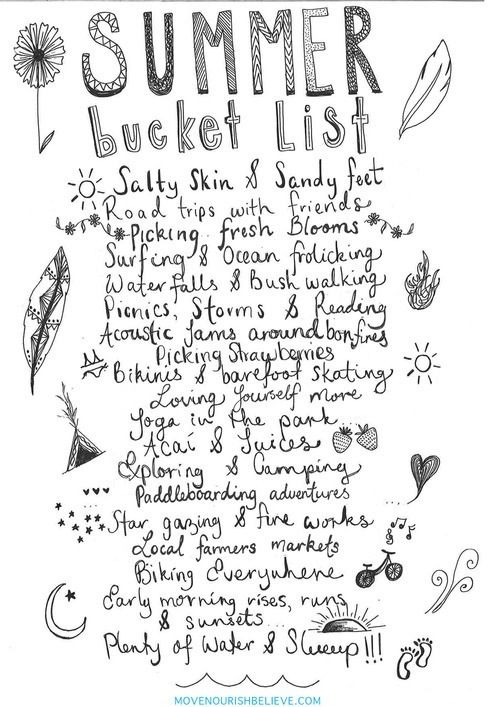 SUMMER
bucket List
Salty Skin & Sandy feet
Road trips with friends
Picking fresh Blooms
Surfing & Ocean frolicking
Waterfalls & Bush walking
Picnics, Storms & Reading
Acoustic Jams around bonfires
Picking Strawberries
Bikinis & barefoot skating
Loving yourself more
Yoga in the park
Acaí & Juices
Exploring & Camping
Paddleboarding adventures
Star gazing & fire works
Local farmers markets
Biking Everywhere
Early morning rises, runs
& sunsets...
Plenty of Water & Sleeeep!!!
MOVENOURISHBELIEVE.COM